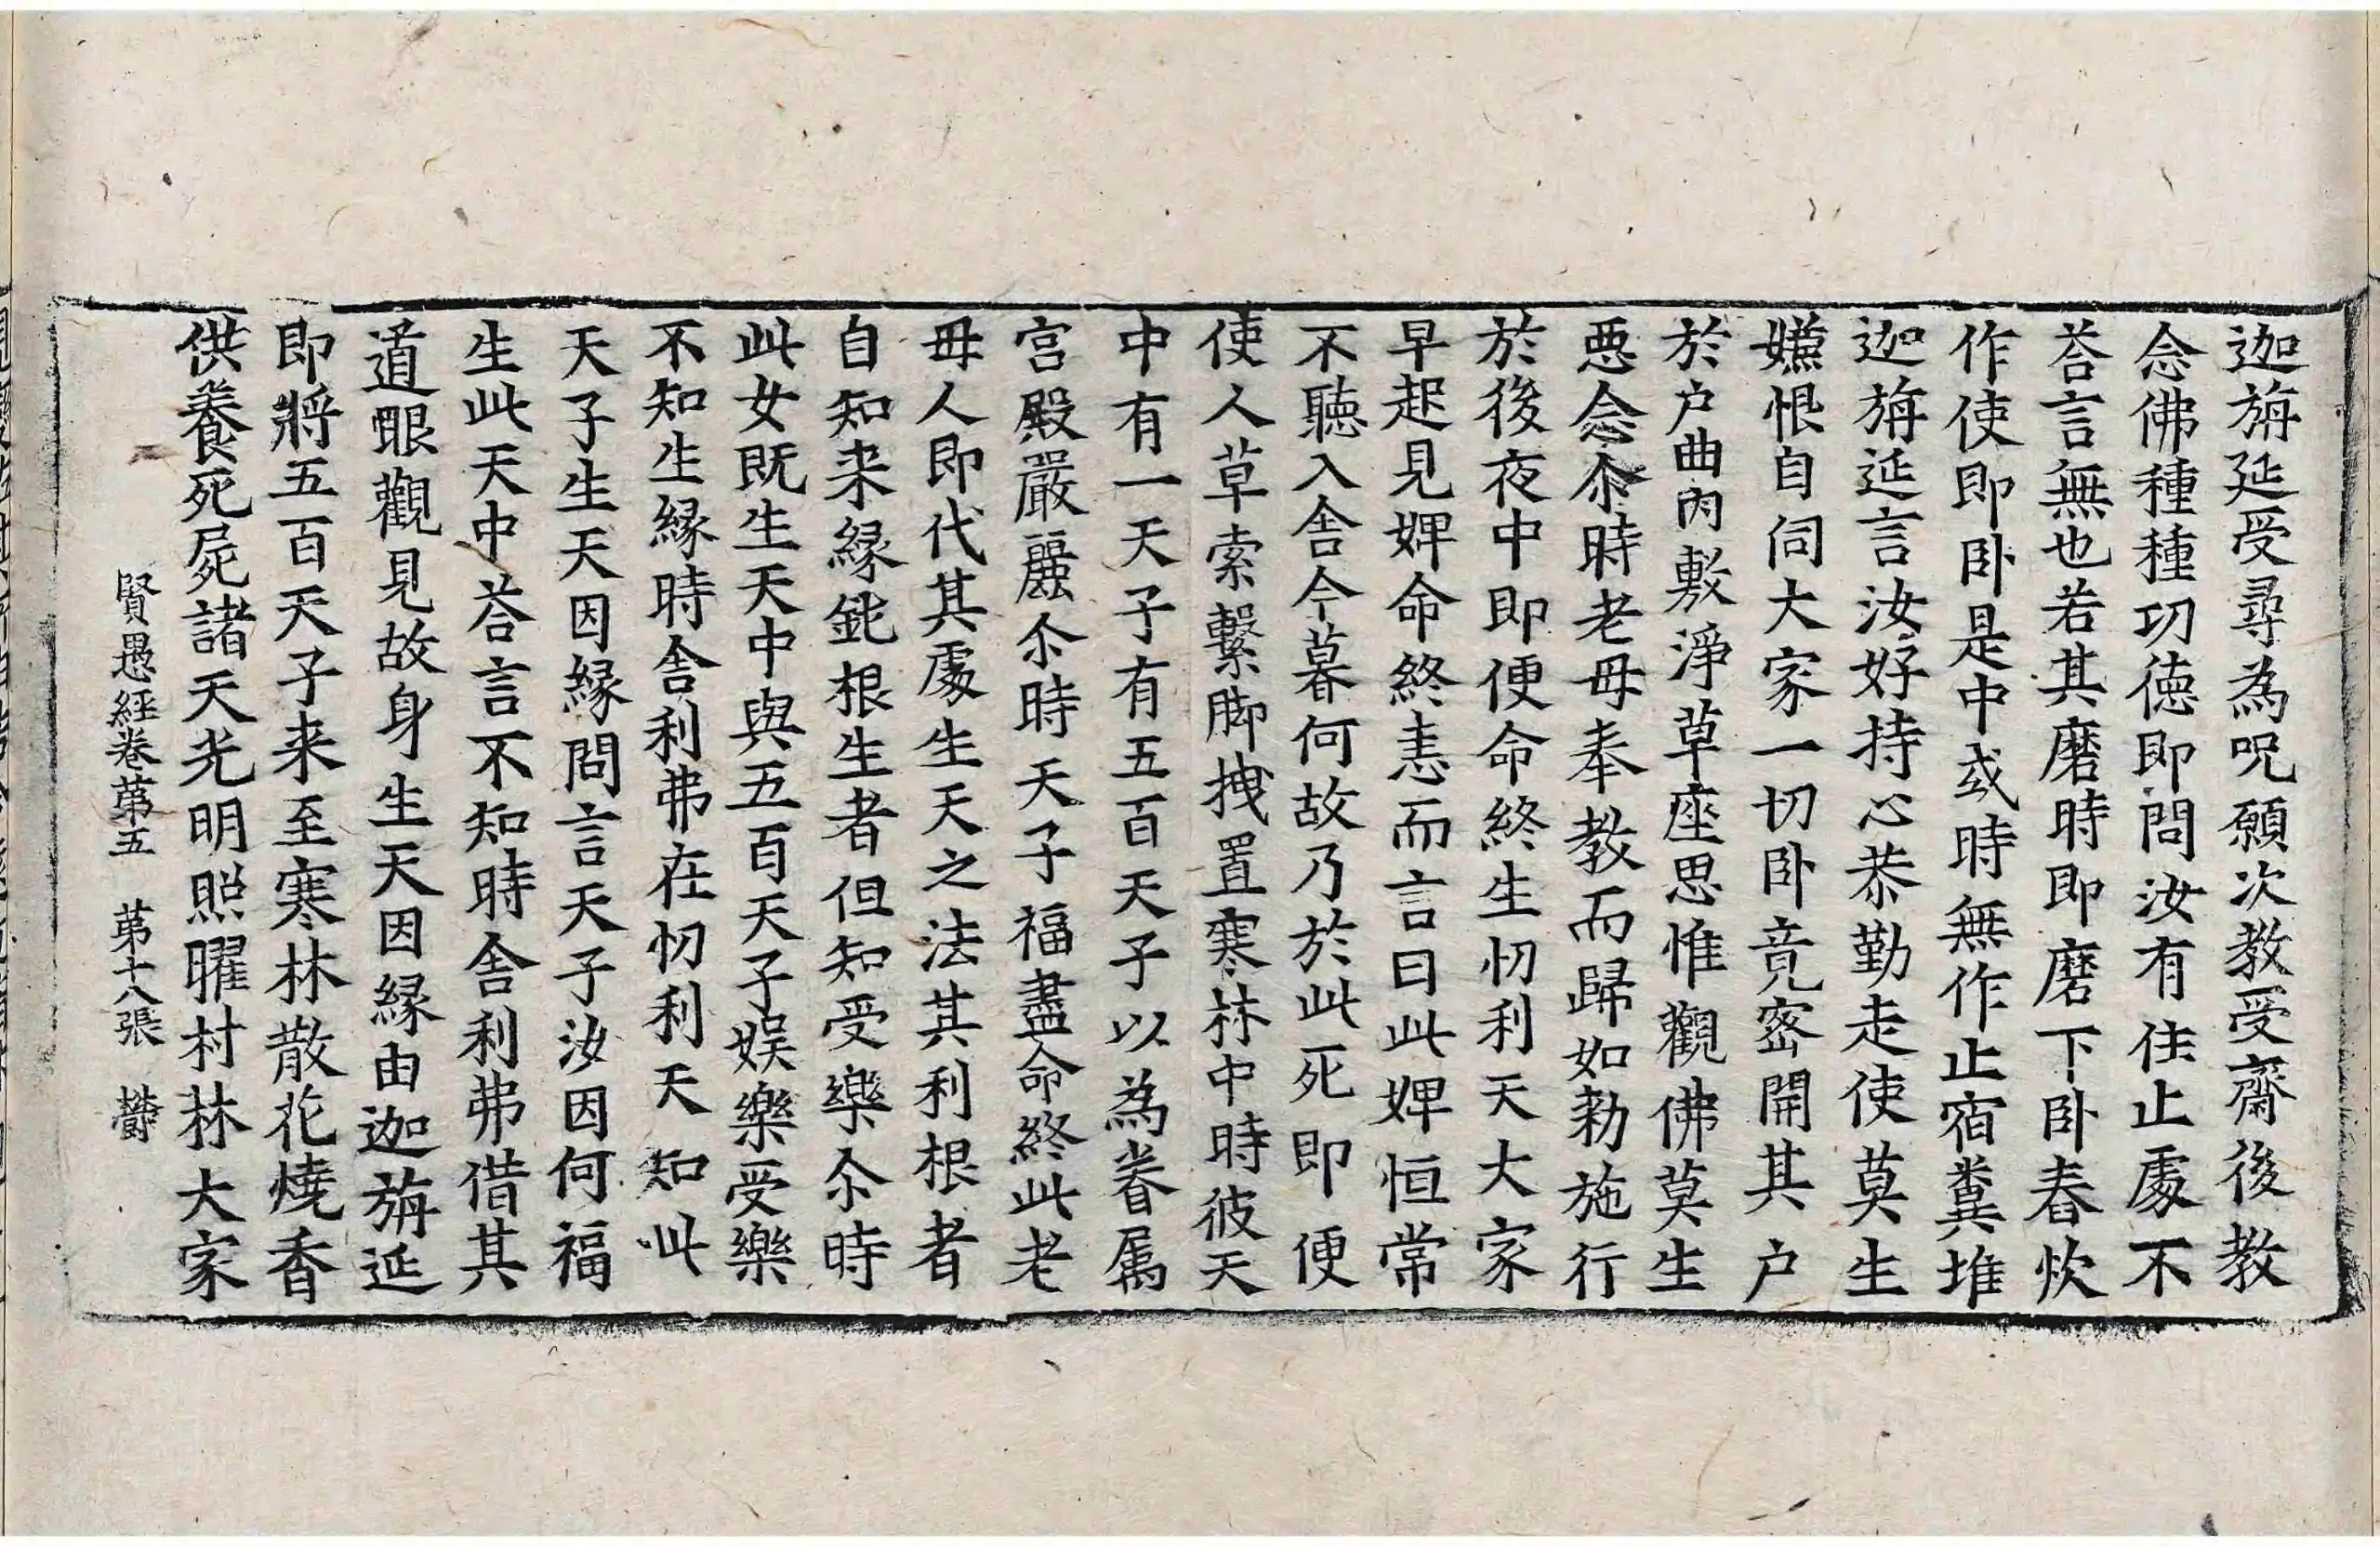 迦旃延受尋為呪願次教受齋後教
念佛種種功徳即問汝有住止處不
荅言無也若其磨時即磨下卧舂炊
作使即卧是中或時無作止宿糞堆
迦旃延言汝好持心恭勤走使莫生
嫌恨自伺大家一切卧竟密開其户
於户曲内敷淨草座思惟觀佛莫生
惡念尒時老母奉教而歸如勑施行
於後夜中即便命終生忉利天大家
早起見婢命終恚而言曰此婢恒常
不聽入舎今暮何故乃於此死即便
使人草索繫脚拽置寒林中時彼天
中有一天子有五百天子以為眷属
宫殿嚴麗尒時天子福盡命終此老
母人即代其處生天之法其利根者
自知来縁鈍根生者但知受樂尒時
此女既生天中與五百天子娱樂受樂
不知生縁時舎利弗在忉利天知此
天子生天因縁問言天子汝因何福
生此天中荅言不知時舎利弗借其
道眼觀見故身生天因縁由迦旃延
即將五百天子来至寒林散花燒香
供養死屍諸天光明照曜村林大家
賢愚經卷第五　第十八張　欝